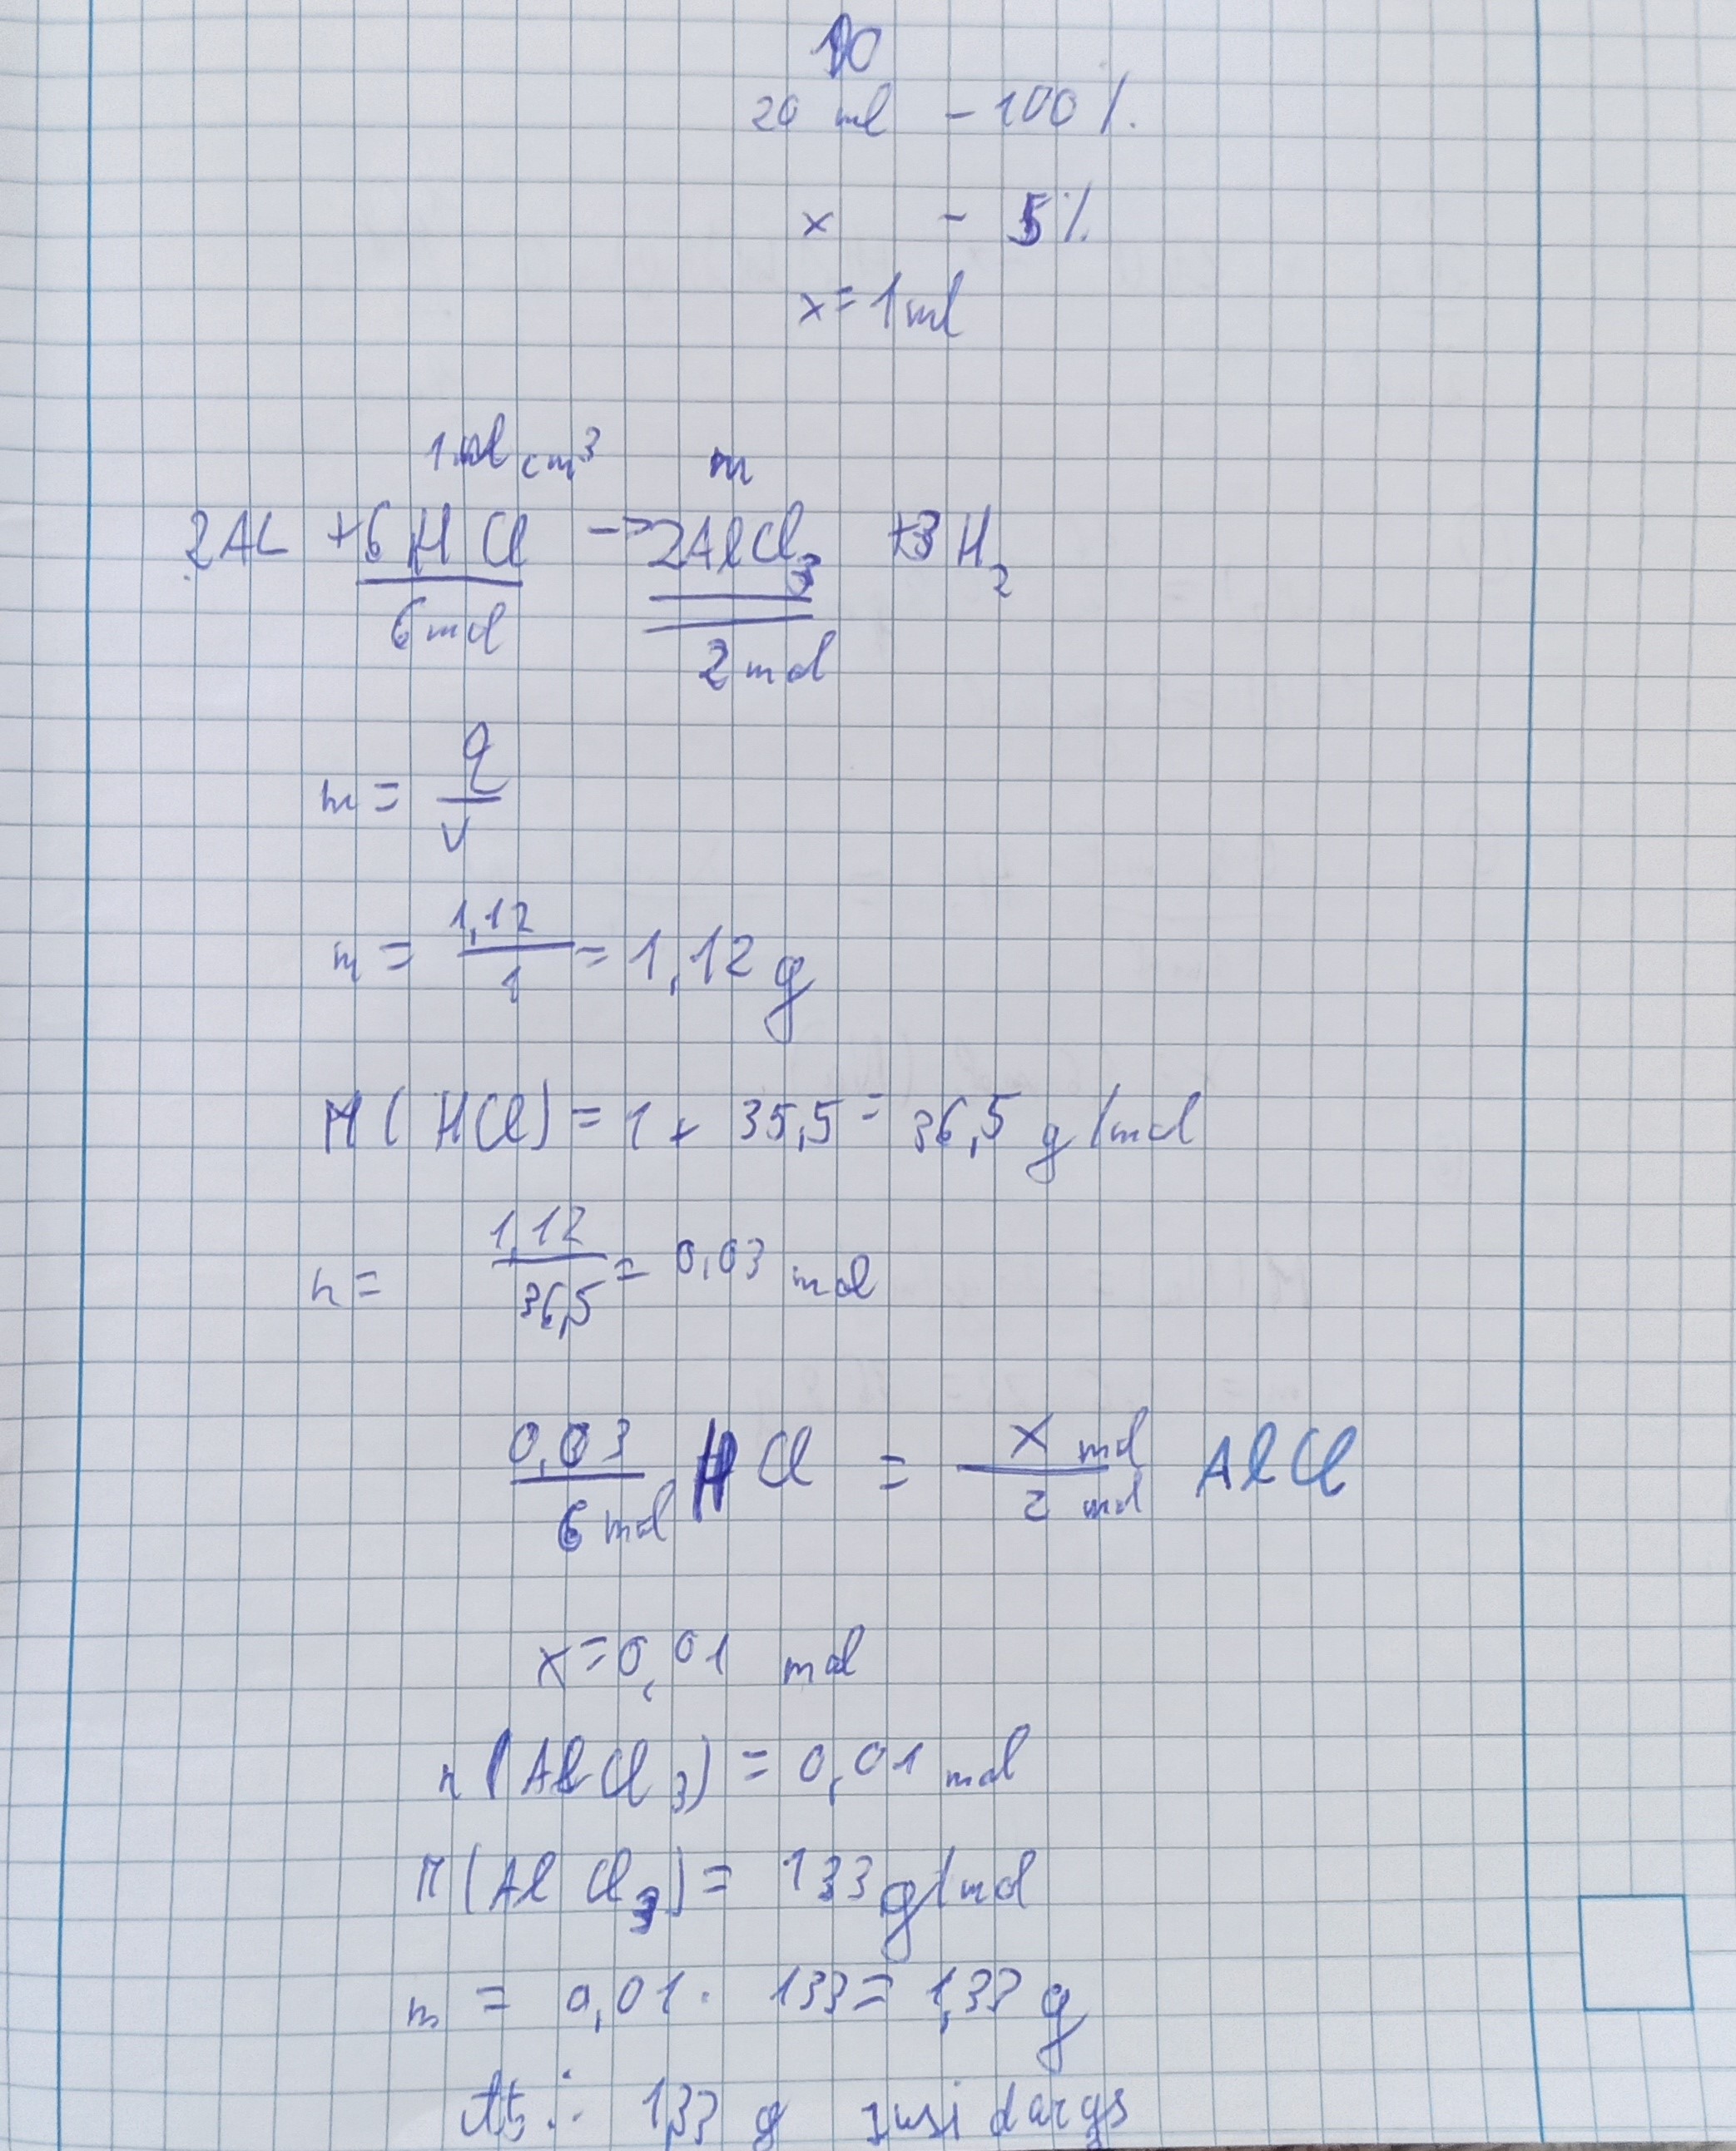 10
20 ml - 100 %
x - 5 %
x = 1 ml
1 ml cm³ m
2AL + 6 H Cl -> 2AlCl₃ + 3 H₂
6 mol 2 mol
m = q/v
m = 1,12/1 = 1,12 g
M ( HCl ) = 1 + 35,5 = 36,5 g/mol
n = 1,12/36,5 = 0,03 mol
0,03/6 mol H Cl = X mol/2 mol AlCl
x = 0,01 mol
n (AlCl₃) = 0,01 mol
M (AlCl₃) = 133 g/mol
m = 0,01 . 133 = 1,33 g
Ats : 1,33 g susidarys